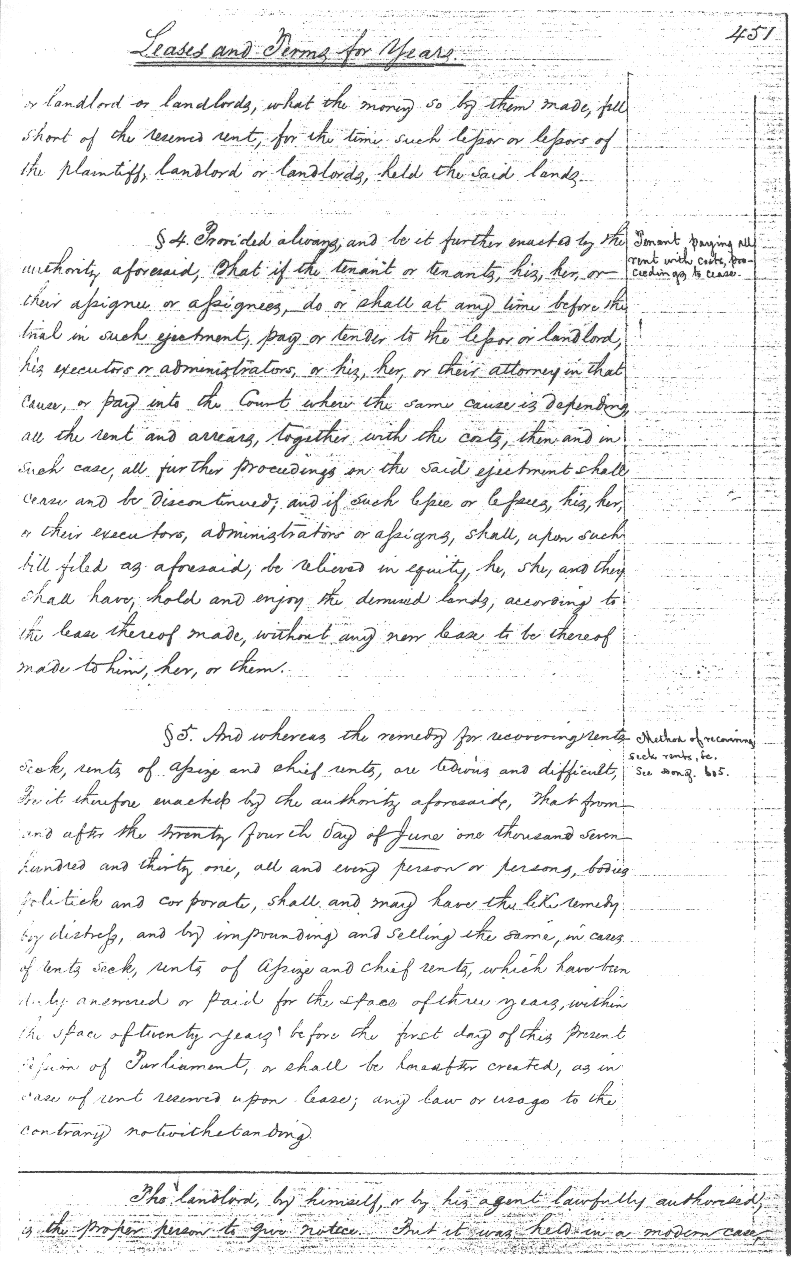 451
Leases and Terms for Years.
or landlord or landlords, what the money so by them made, fell
short of the reserved rent, for the time such lessor or lessors of
the plaintiff, landlord or landlords, held the said lands.
§4. Provided always, and be it further enacted by the
authority aforesaid, That if the tenant or tenants, his, her, or
their assignee or assignees, do or shall at any time before the
trial in such ejectment, pay or tender to the lessor or landlord,
his executors or administrators, or his, her, or their attorney in that
cause, or pay into the Court where the same cause is depending,
all the rent and arrears, together with the costs, then and in
such case, all further proceedings on the said ejectment shall
cease and be discontinued; and if such lessee or lessees, his, her,
or their executors, administrators or assigns, shall, upon such
bill filed as aforesaid, be relieved in equity, he, she, and they
shall have, hold and enjoy the demised lands, according to
the lease thereof made, without any new lease to be thereof
made to him, her, or them.
Tenant paying all
rent with costs, pro-
ceedings to cease.
§5. And whereas the remedy for recovering rents
seck, rents of assize and chief rents, are tedious and difficult,
Be it therefore enacted by the authority aforesaid, That from
and after the twenty fourth day of June one thousand seven
hundred and thirty one, all and every person or persons, bodies
politick and corporate, shall and may have the like remedy
by distress, and by impounding and selling the same, in cases
of rents seck, rents of assize and chief rents, which have been
duly answered or paid for the space of three years, within
the space of twenty years before the first day of this present
session of Parliament, or shall be hereafter created, as in
case of rent reserved upon lease; any law or usage to the
contrary notwithstanding.
Method of recovering
seck rents, &c.
See 605.
The landlord, by himself, or by his agent lawfully authorised,
is the proper person to give notice. But it was held in a modern case,